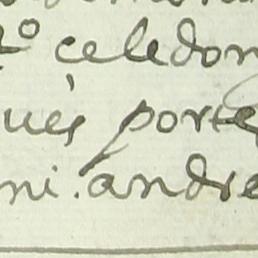 º celedon
ués porte
ni. andre